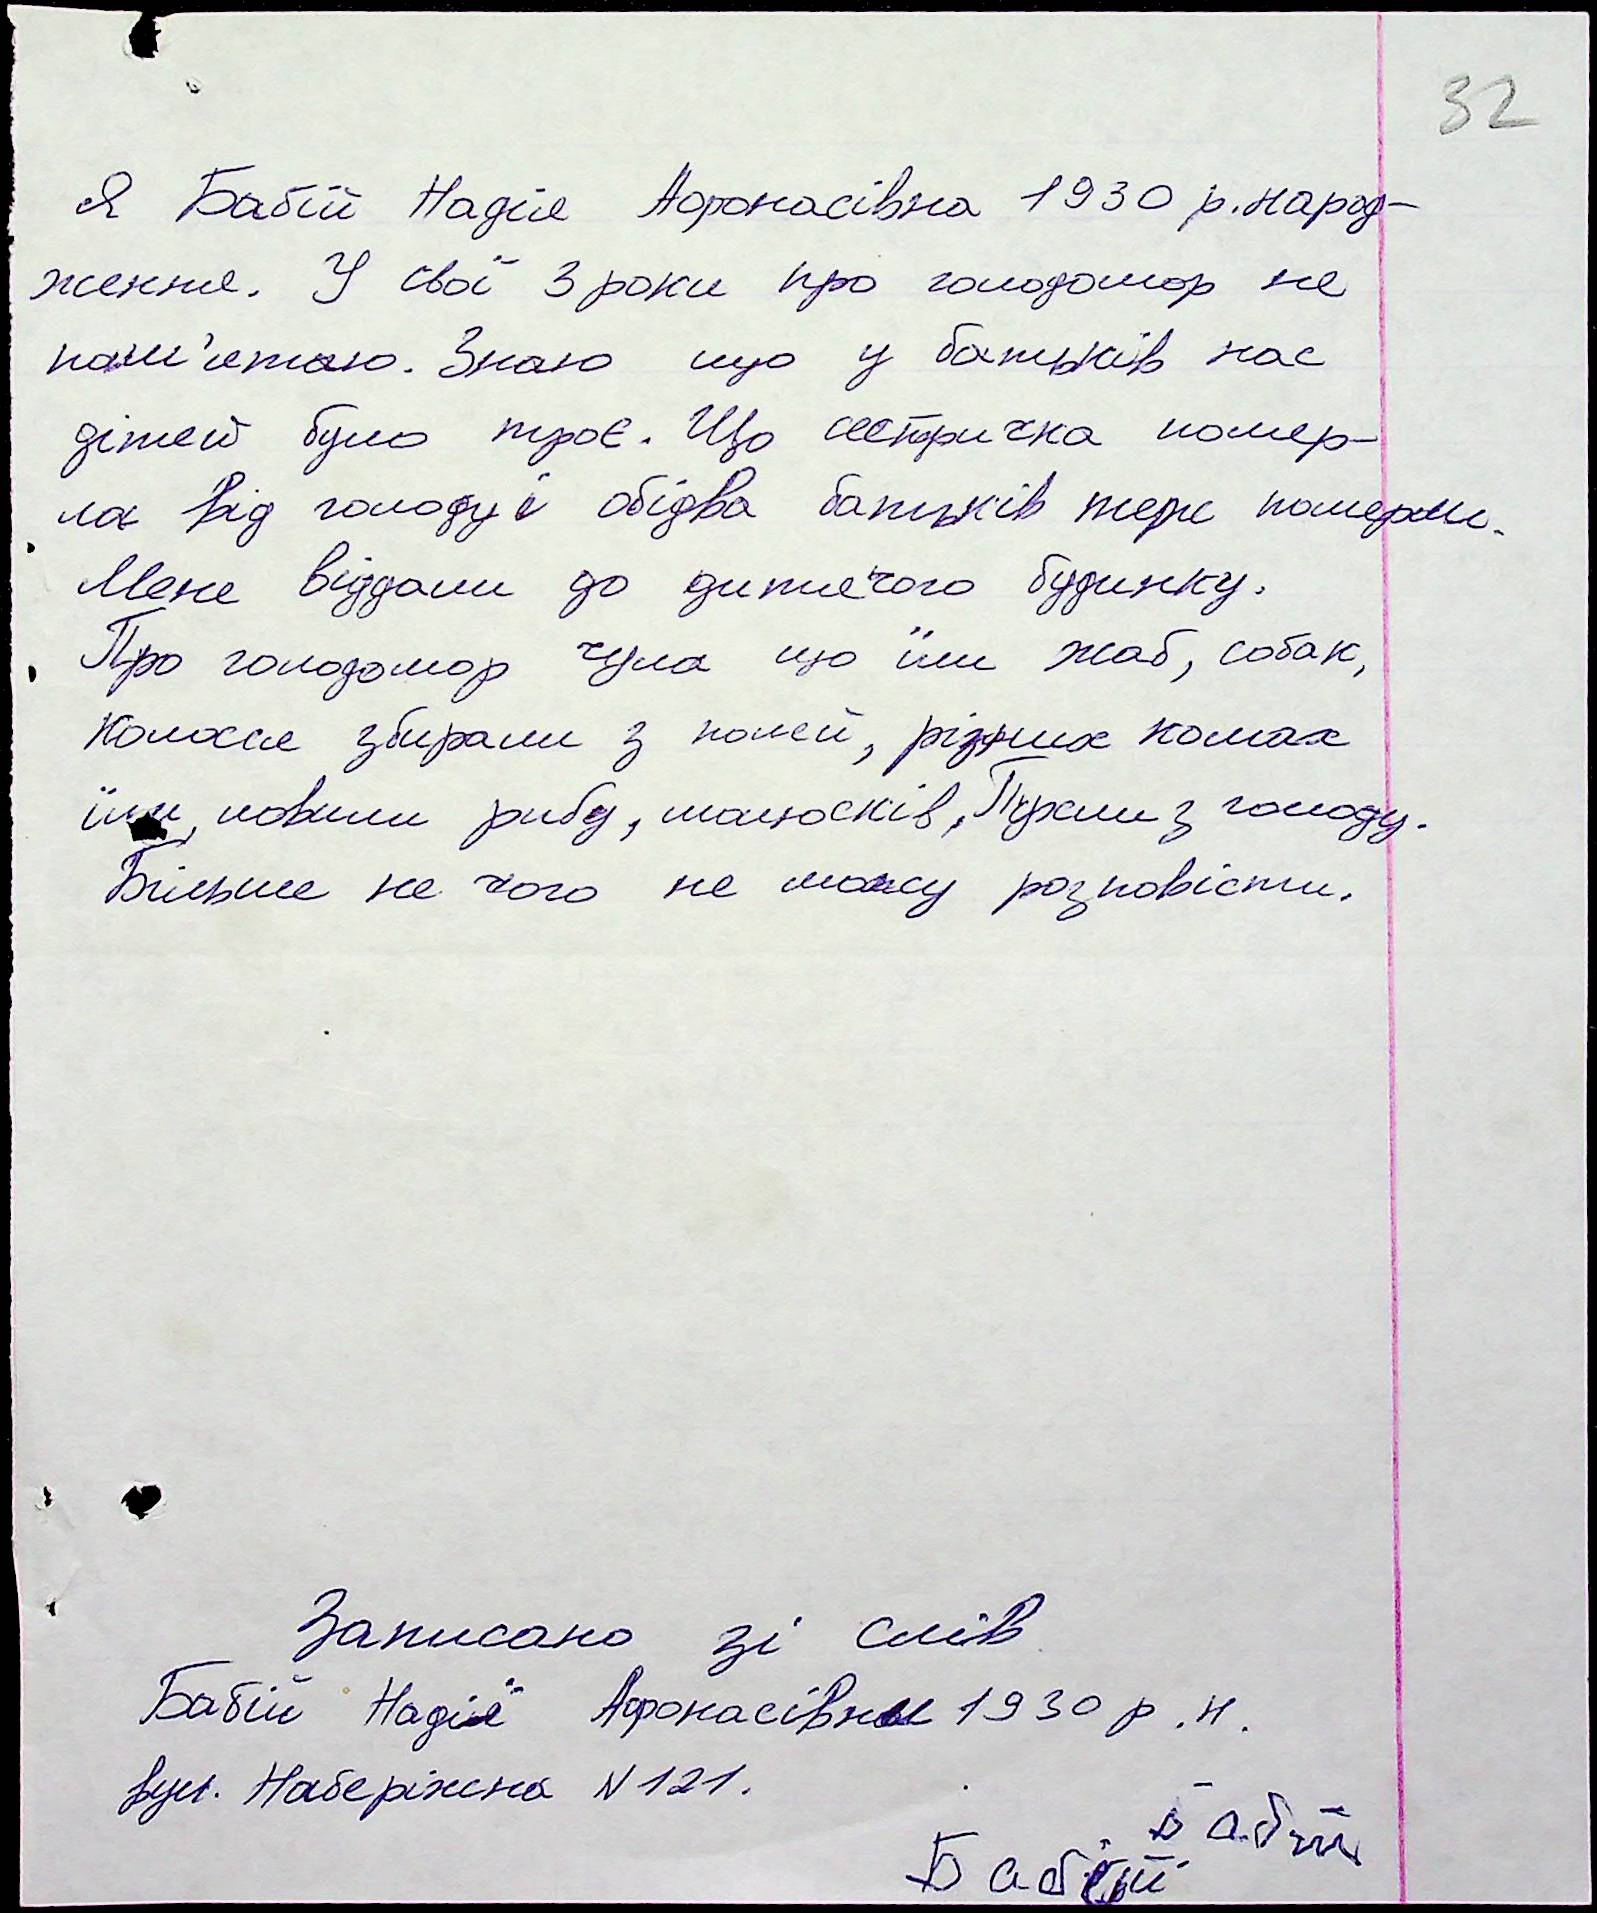 32
Я Бабій Надія Афонасівна 1930 р. народ-
ження. У свої 3 роки про голодомор не
пам'ятаю. Знаю що у батьків нас
дітей було троє. Що сестричка помер-
ла від голоду і обідва батьків теж померли.
Мене віддали до дитячого будинку.
Про голодомор чула що їли жаб, собак,
колосся збирали з полей, різних комах
їли, ловили рибу, малюсків, Пухли з голоду.
Більше не чого не можу розповісти.
Записано зі слів
Бабій Надії Афонасівни 1930 р.н.
вул. Наберіжна N 121.
Бабій
Бабій